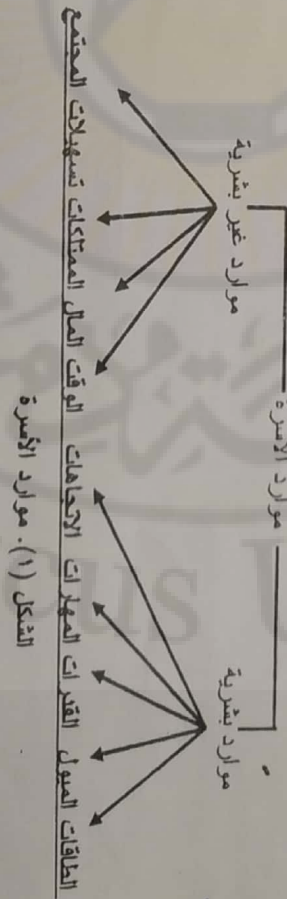 موارد الأسرة
موارد بشرية موارد غير بشرية
الطاقات الميول القدرات المهارات الاتجاهات الوقت المال الممتلكات تسهيلات المجتمع
الشكل (١). موارد الأسرة
cus U